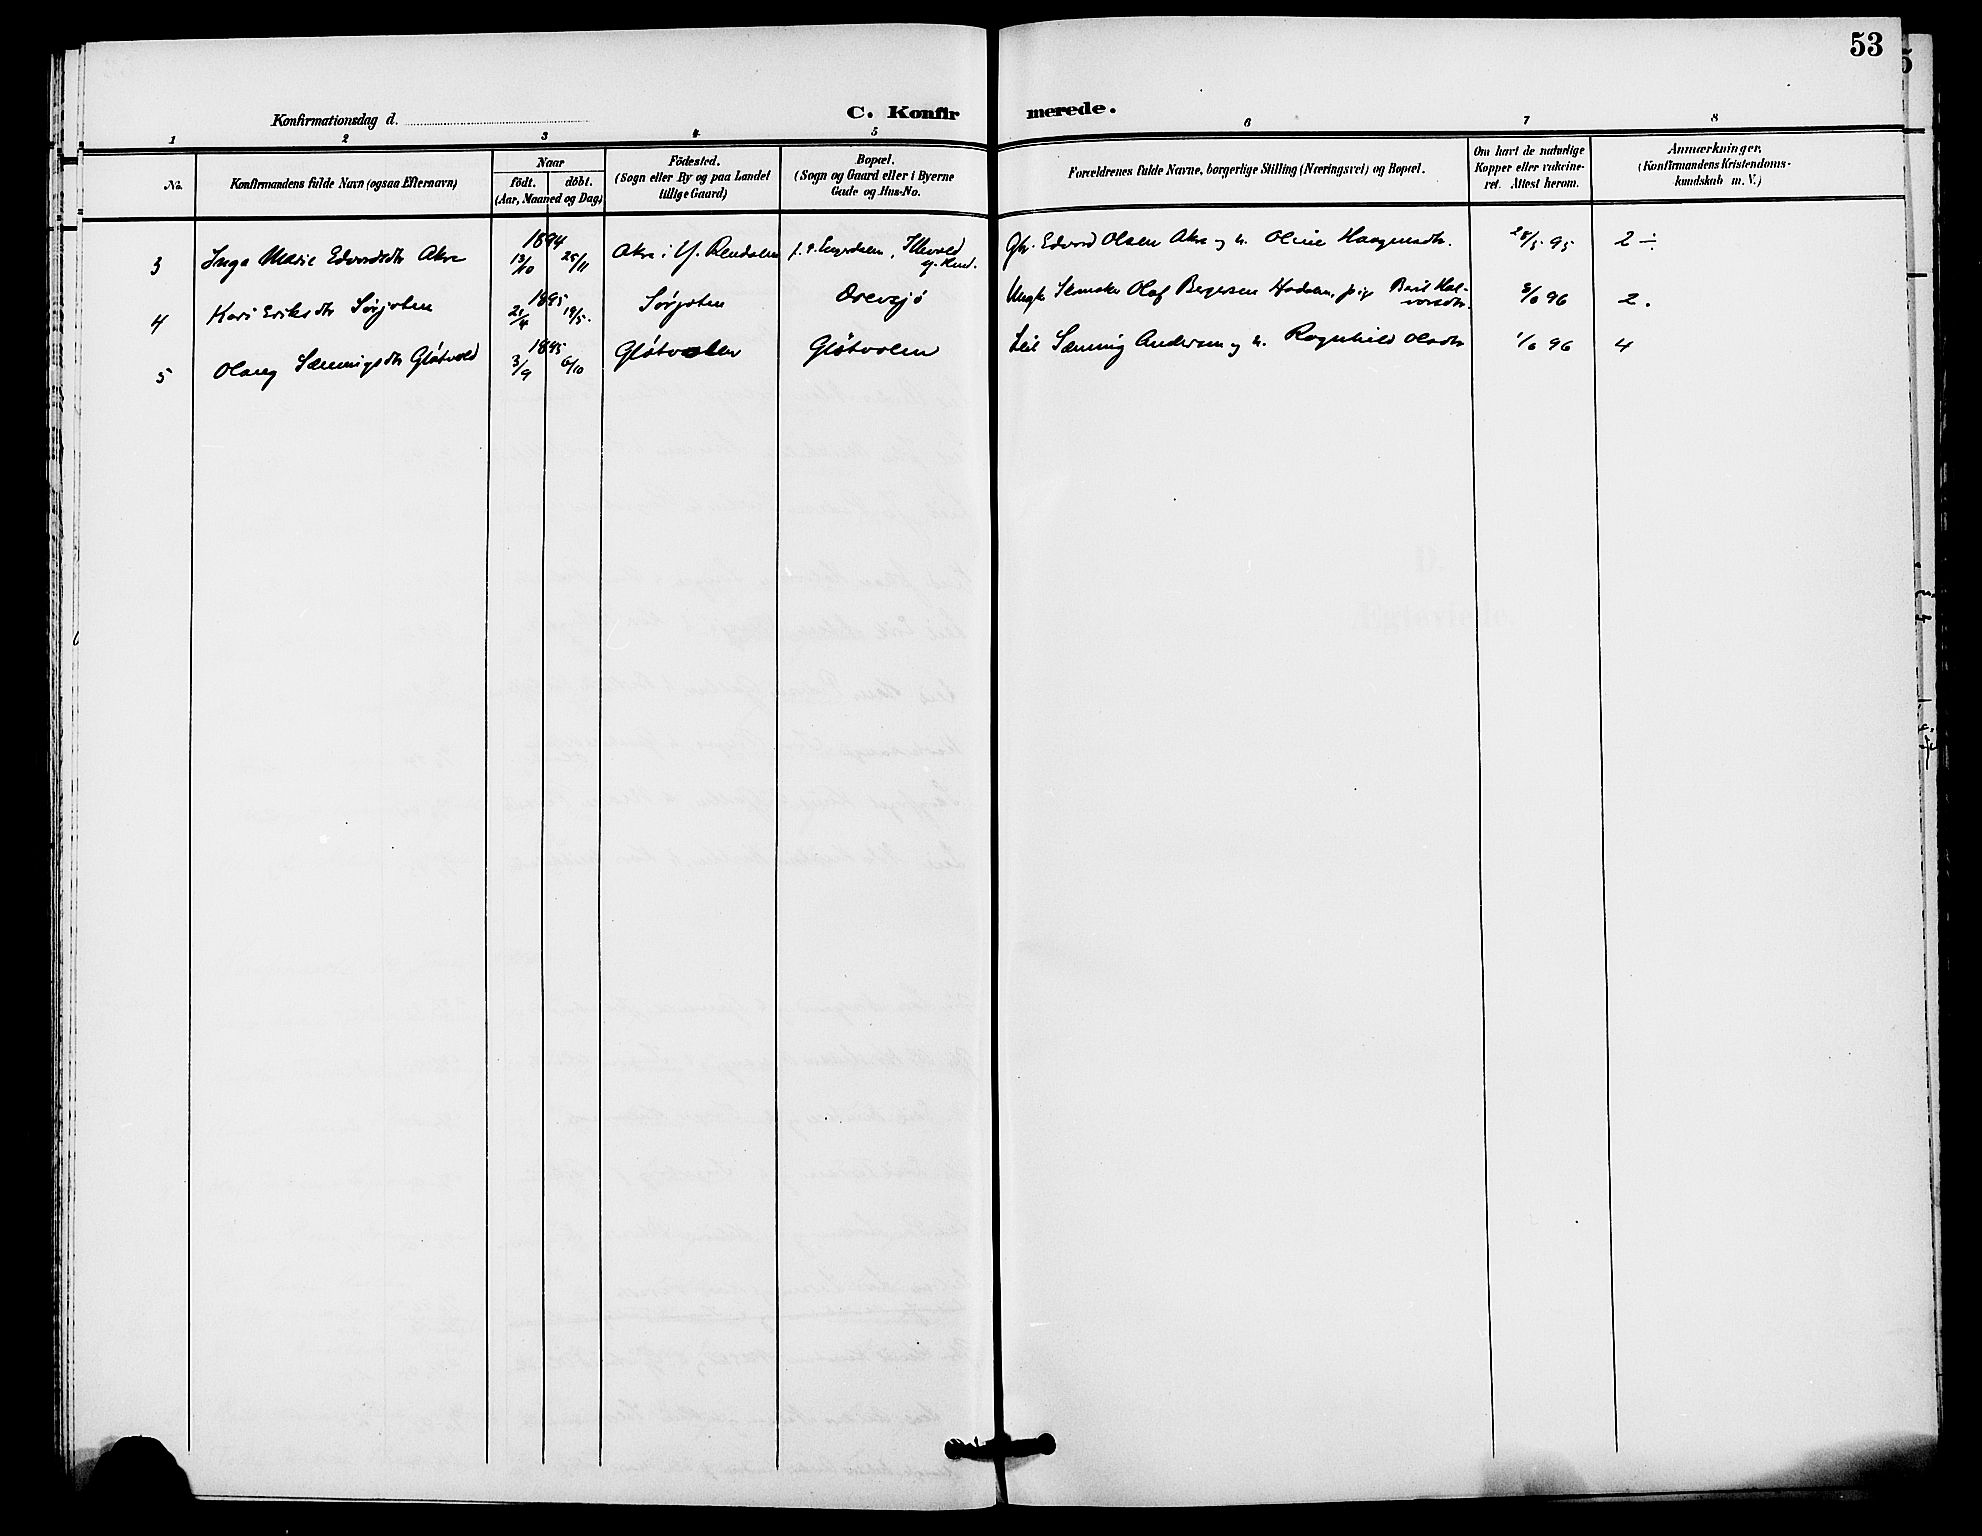 53
Konfirmationsdag d.
C. Konfirmerede.
1 2 3 4 5 6 7 8
No.
Konfirmandens fulde Navn (ogsaa Efternavn)
Naar
födt. döbt.
(Aar, Maaned og Dag)
Födested.
(Sogn eller By og paa Landet
tillige Gaard)
Bopæl.
(Sogn og Gaard eller i Byerne
Gade og Hus-No.
Forældrenes fulde Navne, borgerlige Stilling (Næringsvei) og Bopæl.
Om havt de naturlige
Kopper eller vakcine-
ret. Attest herom.
Anmærkninger.
(Konfirmandens Kristendoms-
kundskab m. V.)
3 Inga Marie Edvardsdtr Akre 1894 13/10 25/11 Akre i Y. Rendalen Edvard Olsen Akre og h. Oline Haagensdtr. 28/5 95 2 ÷
4 Kari Eriksdtr Sørjoten 1895 21/4 19/5 Sørjoten Drevsjø Ungk Skomaker Olaf Bergersen pige Beret Halvorsdtr. 96 2.
5 Olaug Sæmingsdtr Gløtvold 1895 3/9 6/10 Gløtvolen Gløtvolen Leil Sæming Andersen og h. Ragnhild Olsdtr 1/6 96 4